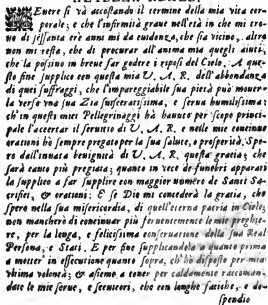 Euere si và accostando il termine della mia vita cor-
porale; e che l'infirmità graue nell'età in che mi tro-
uo di sessanta trè anni mi dà euidenza, che sia vicino, altro
non mi resta, che di procurar all'anima mia quegli aiuti,
che la possino in breue far godere i riposi del Cielo. A que-
sto fine supplico con questa mia V. A. R. dell'abbondanza
di quei suffraggi, che l'impareggiabile sua pietà può mouer-
la verso vna sua Zia suisceratissima, e serua humilissima;
ch'in questi miei Pellegrinaggi hà hauuto per scopo princi-
pale l'accertar il seruitio di V. A. R. e nelle mie continue
orationi hò sempre pregato per la sua salute, e prosperità. Spe-
ro dall'innata benignità di V. A. R. questa gratia; che
sarà tanto più pregiata; quanto in vece de funebri apparati
la supplico a far supplire con maggior numero de Santi Sa-
crifici, & orationi; E se Dio mi concederà la gratia, che
spero nella sua misericordia, di quell'eterna patria in Cielo,
non mancherò di continuar più feruentemente le mie preghie-
re, per la longa, e felicissima conseruatione della sua Real
Persona, e Stati. E per fine supplicandola quanto prima
a motter' in essecutione quanto sopra, ch'hò disposto per mia
vltima volontà; & assieme a tener per caldamente raccoman-
date le mie serue, e seruitori, che con longhe fatiche, e di-
spendio